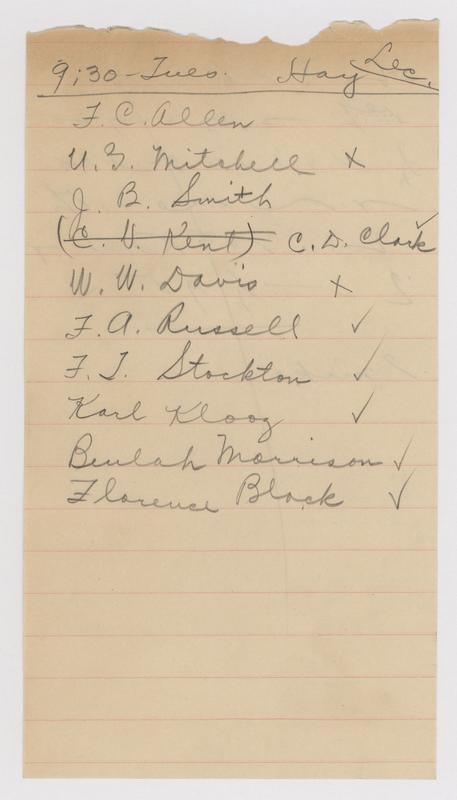 9:30 - Tues. Hay Lec.
F. C. Allen
U. G. Mitchell x
J. B. Smith
(C. V. Kent) C. D. Clark ✓
W. W. Davis x
F. A. Russell ✓
F. T. Stockton ✓
Karl Klooz ✓
Beulah Morrison ✓
Florence Black ✓